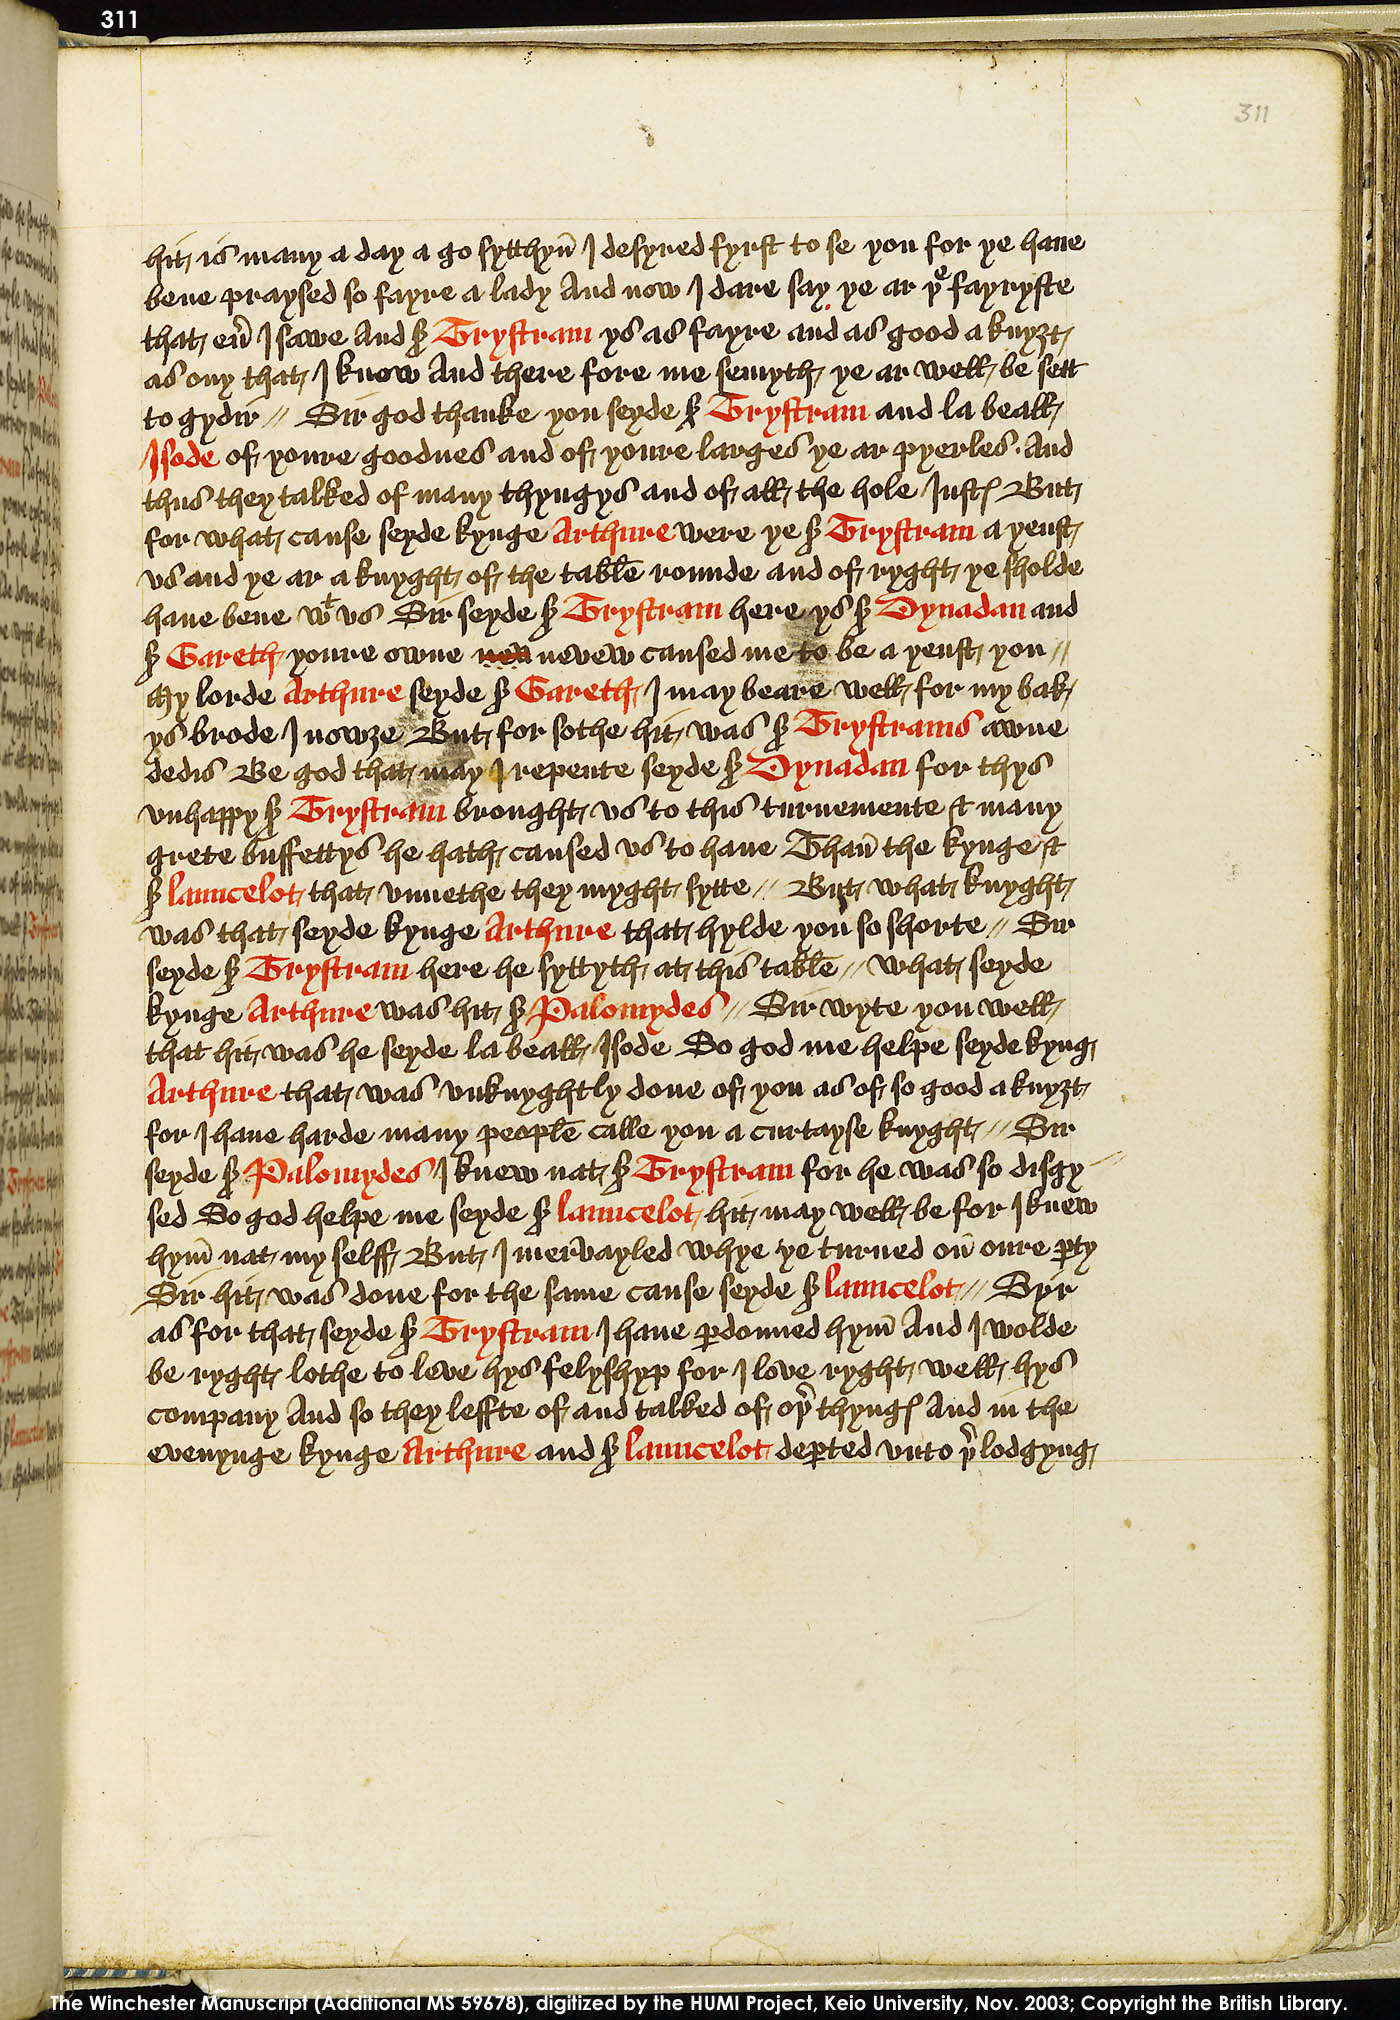 311
311
hit is many a day a go sytthyn̄ I desyred fyrst to se you for ye haue
bene praysed so fayre a lady And now I dare say ye ar yᵉ fayryste
that eu̅ I sawe And sr̃ Trystram ys as fayre and as good a knyȝt
as ony that I know And there fore me semyth ye ar well be sett
to gydir // Sir god thanke you seyde sr̃ Trystram and la beall
Isode of youre goodnes and of youre larges ye ar pyerles. And
thus they talked of many thyngys and of all the hole Justꝭ But
for what cause seyde kynge Arthure were ye sr̃ Trystram a yenst
vs and ye ar a knyght of the table rounde and of ryght ye sholde
haue bene wᵗ vs Sir seyde sr̃ Trystram here ys sr̃ Dynadan and
sr̃ Gareth youre owne nevew caused me to be a yenst you //
My lorde Arthure seyde sr̃ Gareth I may beare well for my bak
ys brode I nowȝe But for sothe hit was sr̃ Trystrams awne
dedis Be god that may I repente seyde sr̃ Dynadan for thys
vnhappy sr̃ Trystram brought vs to this turnemente & many
grete buffettys he hath caused vs to haue Than̄ the kynge &
sr̃ launcelot that vnnethe they myght sytte // But what knyght
was that seyde kynge Arthure that hylde you so shorte // Sir
seyde sr̃ Trystram here he syttyth at this table // What seyde
kynge Arthure was hit sr̃ Palomydes // Sir wyte you well
that hit was he seyde la beall Isode So god me helpe seyde kyng
Arthure that was vnknyghtly done of you as of so good a knyȝt
for I haue harde many people calle you a curtayse knyght // Sir
seyde sr̃ Palomydes I knew nat sr̃ Trystram for he was so disgy //
sed So god helpe me seyde sr̃ launcelot hit may well be for I knew
hym̄ nat my selff But I mervayled whye ye turned on̄ oure ꝑty
Sir hit was done for the same cause seyde sr̃ launcelot // Syr
as for that seyde sr̃ Trystram I haue ꝑdonned hym̄ And I wolde
be ryght lothe to leve hys felyshyp for I love ryght well hys
company And so they leffte of and talked of oyʳ thyngꝭ And in the
evenynge kynge Arthure and sr̃ launcelot deꝑted vnto yʳ lodgyng
The Winchester Manuscript (Additional MS 59678), digitized by the HUMI Project, Keio University, Nov. 2003; Copyright the British Library.